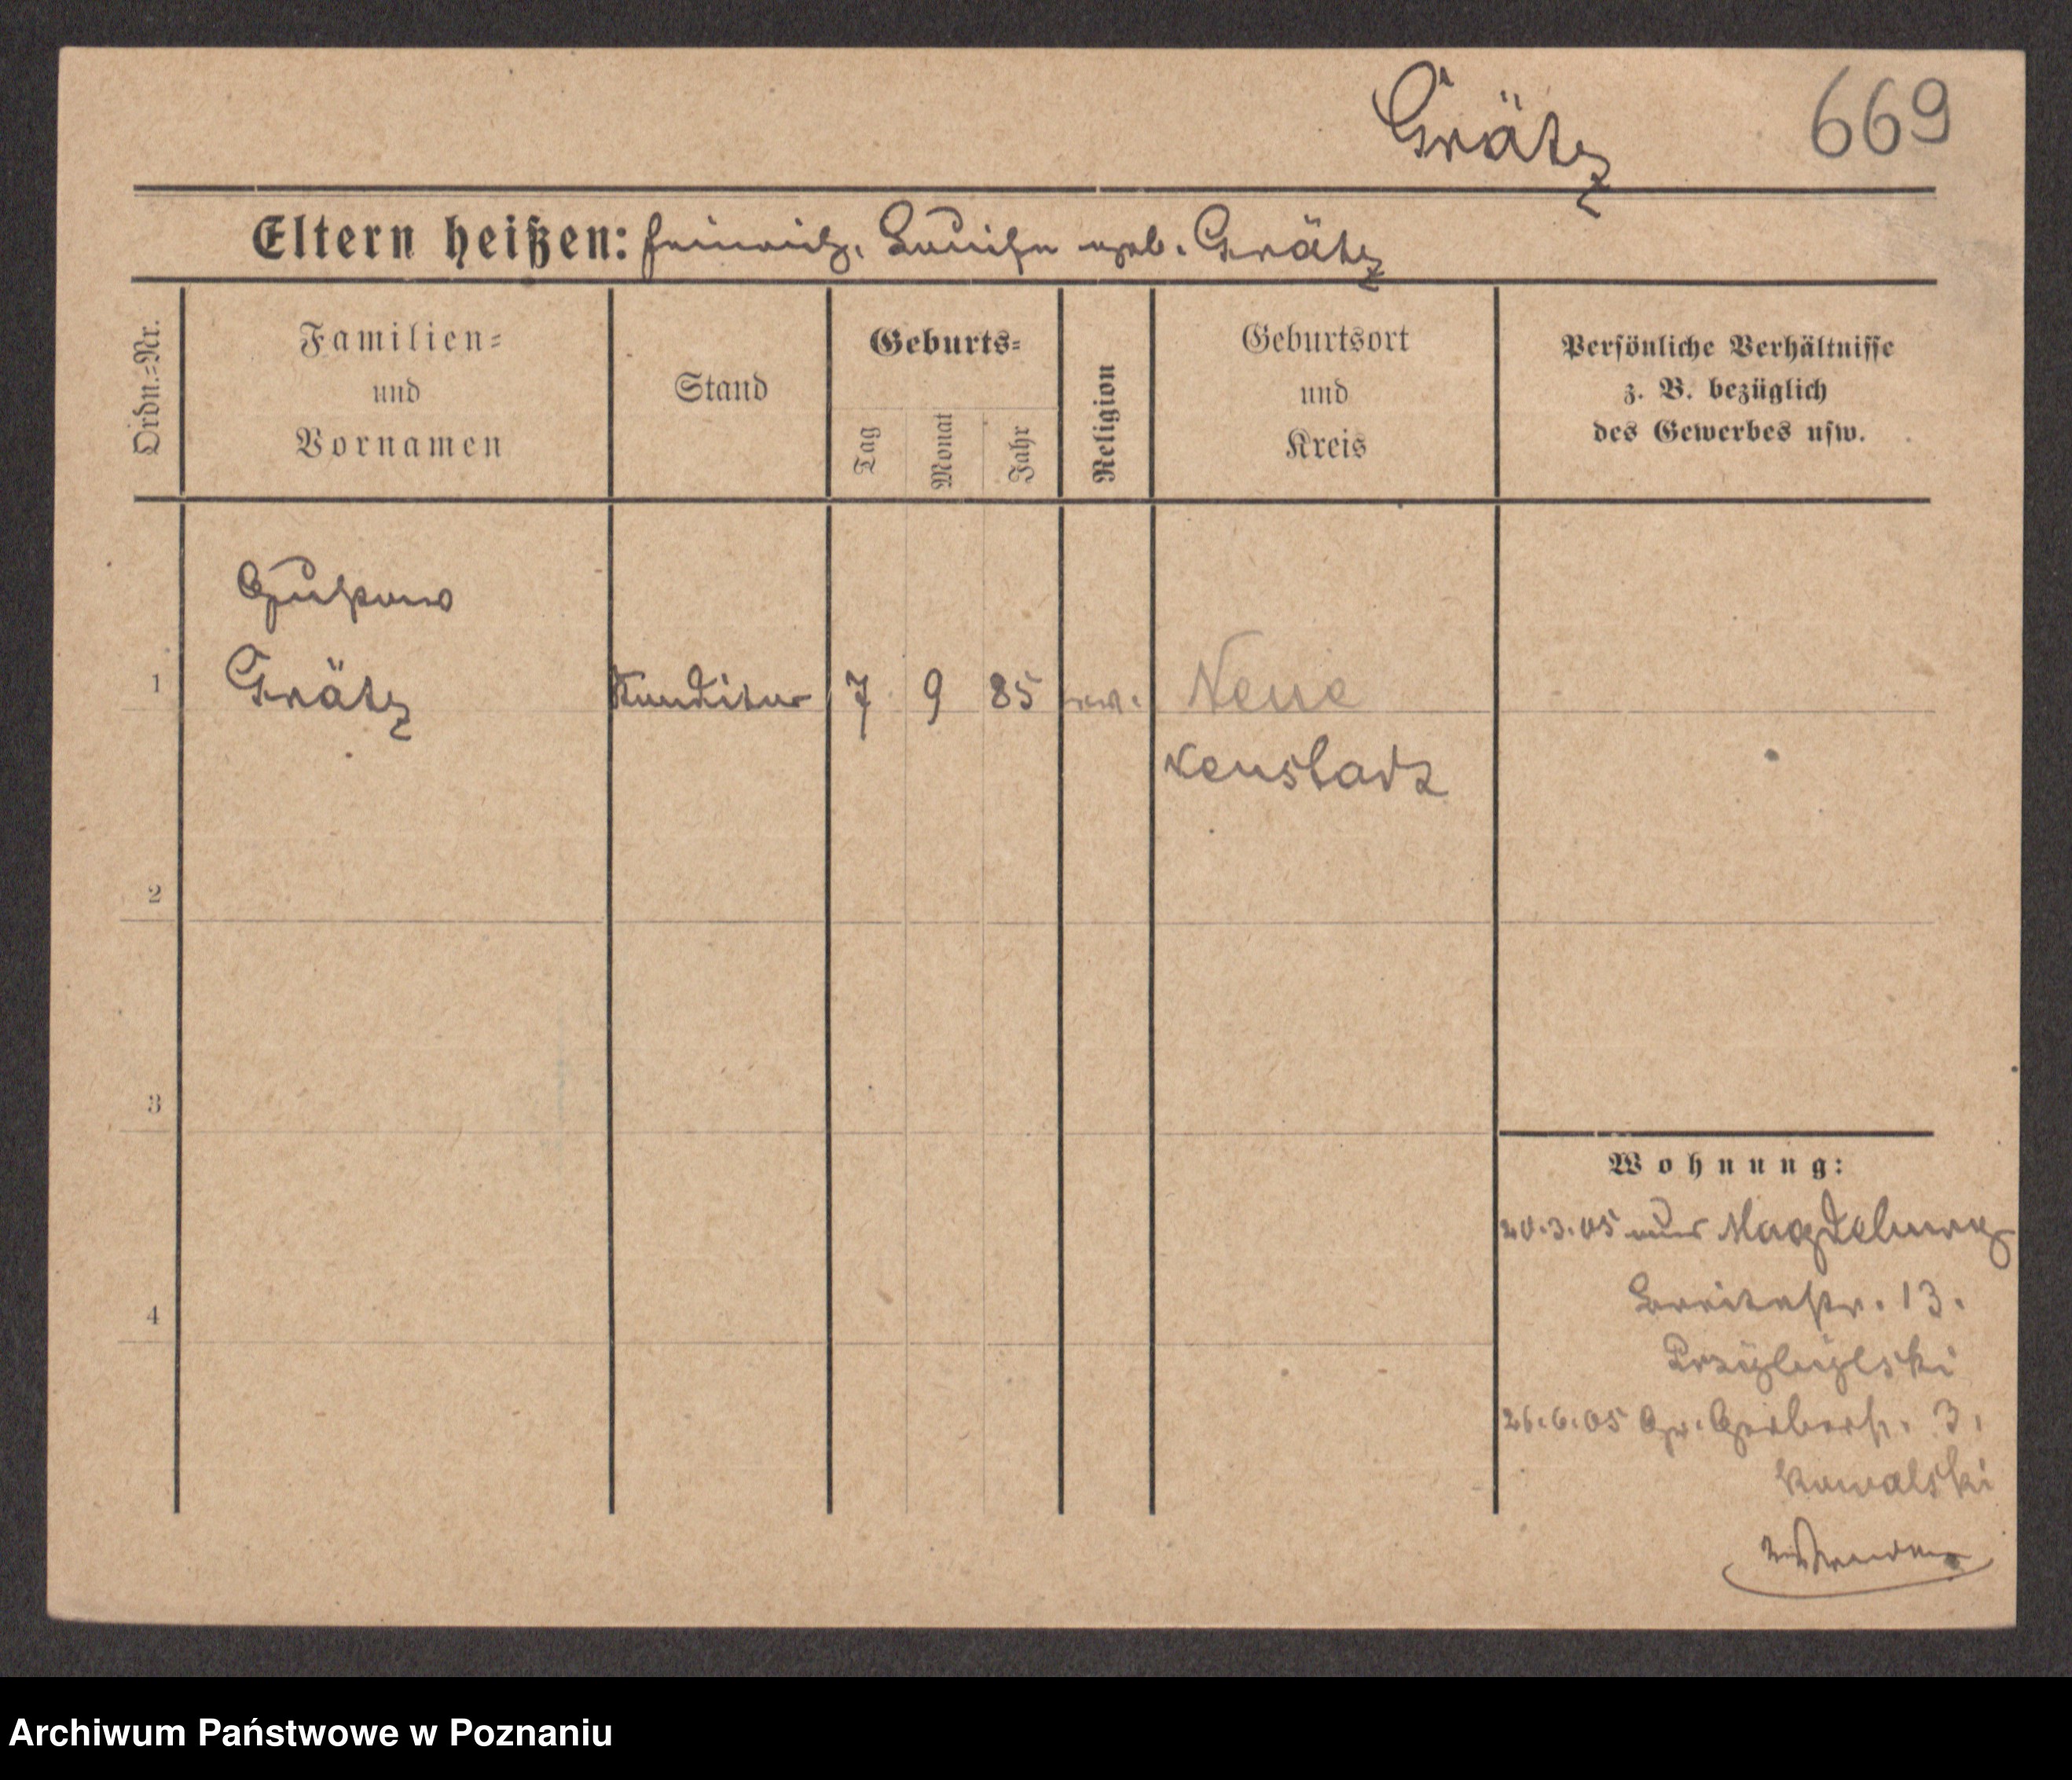 Grätz
669
Eltern heißen: Heinrich, Louise geb. Grätz
Ordn.-Nr.
Familien-
und
Vornamen
Stand
Geburts-
Tag
Monat
Jahr
Religion
Geburtsort
und
Kreis
Persönliche Verhältnisse
z. B. bezüglich
des Gewerbes usw.
Gustav
1 Grätz Konditor 7 9 85 ev. Neue
2
3
4
Wohnung:
20.3.05 aus Magdeburg
Breitestr. 13.
Przybylski
26.6.05 Gr. Gerberstr. 3.
Kowalski
Archiwum Państwowe w Poznaniu